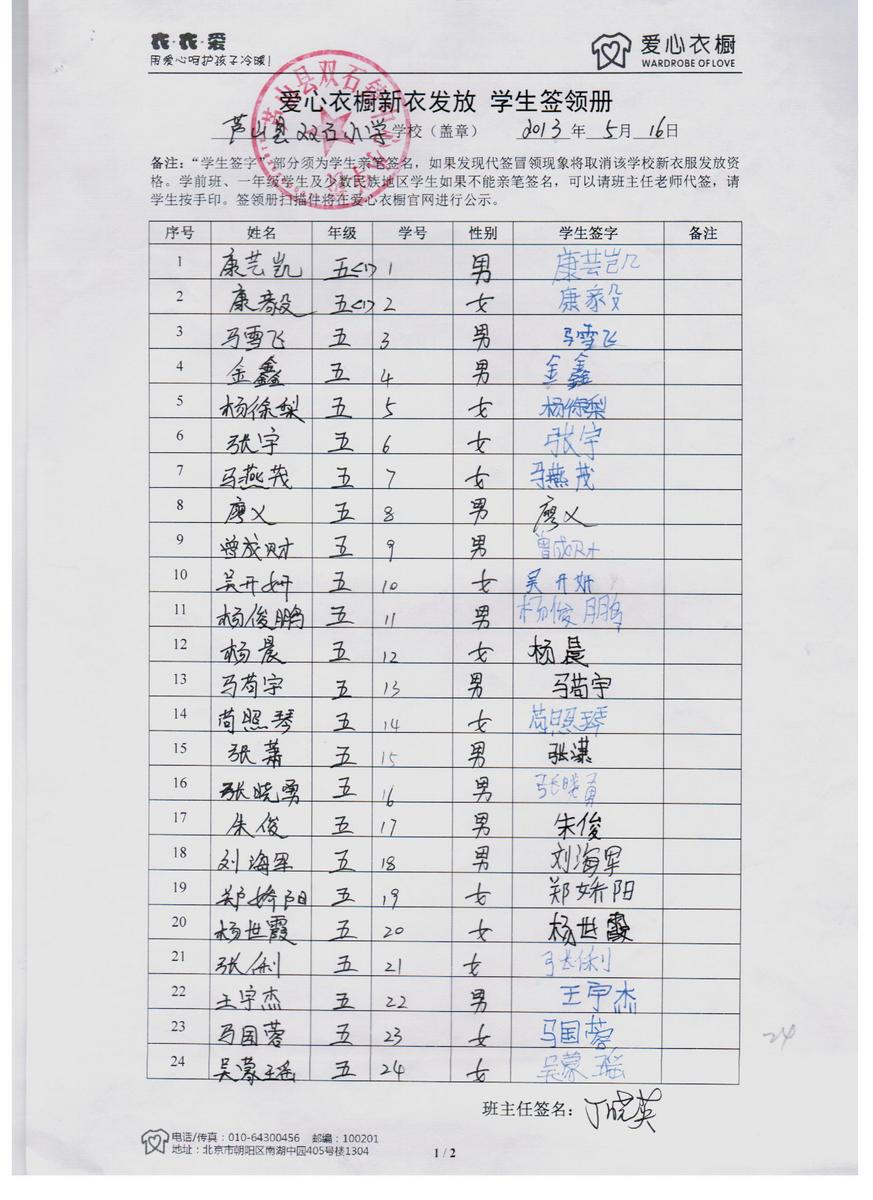 衣·衣·爱
用爱心呵护孩子冷暖!
爱心衣橱
WARDROBE OF LOVE
爱心衣橱新衣发放 学生签领册
芦山县双石小学学校（盖章） 2013年5月16日
备注：“学生签字”部分须为学生亲笔签名，如果发现代签冒领现象将取消该学校新衣服发放资
格。学前班、一年级学生及少数民族地区学生如果不能亲笔签名，可以请班主任老师代签，请
学生按手印。签领册扫描件将在爱心衣橱官网进行公示。
序号 姓名 年级 学号 性别 学生签字 备注
1 康芸凯 五<1> 1 男 康芸凯
2 康毅 五<1> 2 女 康毅
3 马雪飞 五 3 男 马雪飞
4 金鑫 五 4 男 金鑫
5 杨徐梨 五 5 女 杨徐梨
6 张宇 五 6 女 张宇
7 马燕茂 五 7 女 马燕茂
8 廖义 五 8 男 廖义
9 曾成财 五 9 男 曾成财
10 吴开妍 五 10 女 吴开妍
11 杨俊鹏 五 11 男 杨俊鹏
12 杨晨 五 12 女 杨晨
13 马苟宇 五 13 男 马苟宇
14 苟照琴 五 14 女 苟照琴
15 张萧 五 15 男 张潇
16 张晓勇 五 16 男 张晓勇
17 朱俊 五 17 男 朱俊
18 刘海军 五 18 男 刘海军
19 郑娇阳 五 19 女 郑娇阳
20 杨世霞 五 20 女 杨世霞
21 张俐 五 21 女 张俐
22 王宇杰 五 22 男 王宇杰
23 马国蓉 五 23 女 马国蓉
24 吴蒙瑶 五 24 女 吴蒙瑶
24
班主任签名：丁晓英
电话/传真：010-64300456 邮编：100201
地址：北京市朝阳区南湖中园405号楼1304
1 / 2